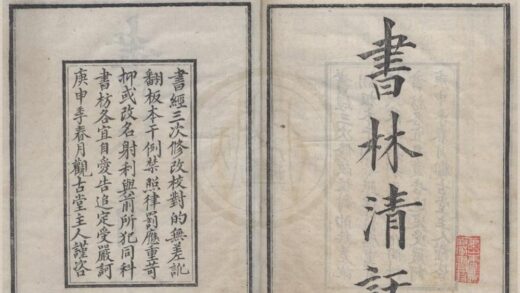 書林清話
書經三次修改校對的無差訛
翻板本干例禁照律罰應重苛
抑或改名射利與前所犯同科
書坊各宜自愛告追定受嚴訶
庚申季春月觀古堂主人謹咨